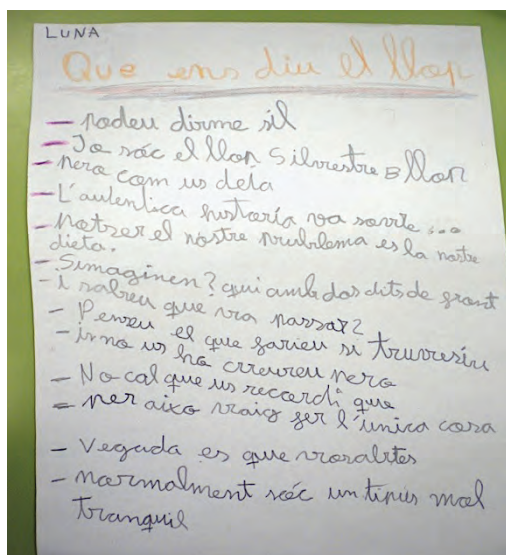 LUNA
Que ens diu el llop
– podeu dirme sil
– Jo sóc el llop Silvestre B llop
– pero com us deia
– L'autentica historia va sobre ...
– potser el nostre problema es la nostre
dieta.
– S'imaginen? qui amb dos dits de front
– i sabeu que va passar?
– Penseu el que farieu si truvresiu
– i no us ho creureu pero
– No cal que us recordi que
– per aixo vraig fer l'unica cosa
– Vegada es que vrosaltes
– normalment sóc un tipus mol
tranquil